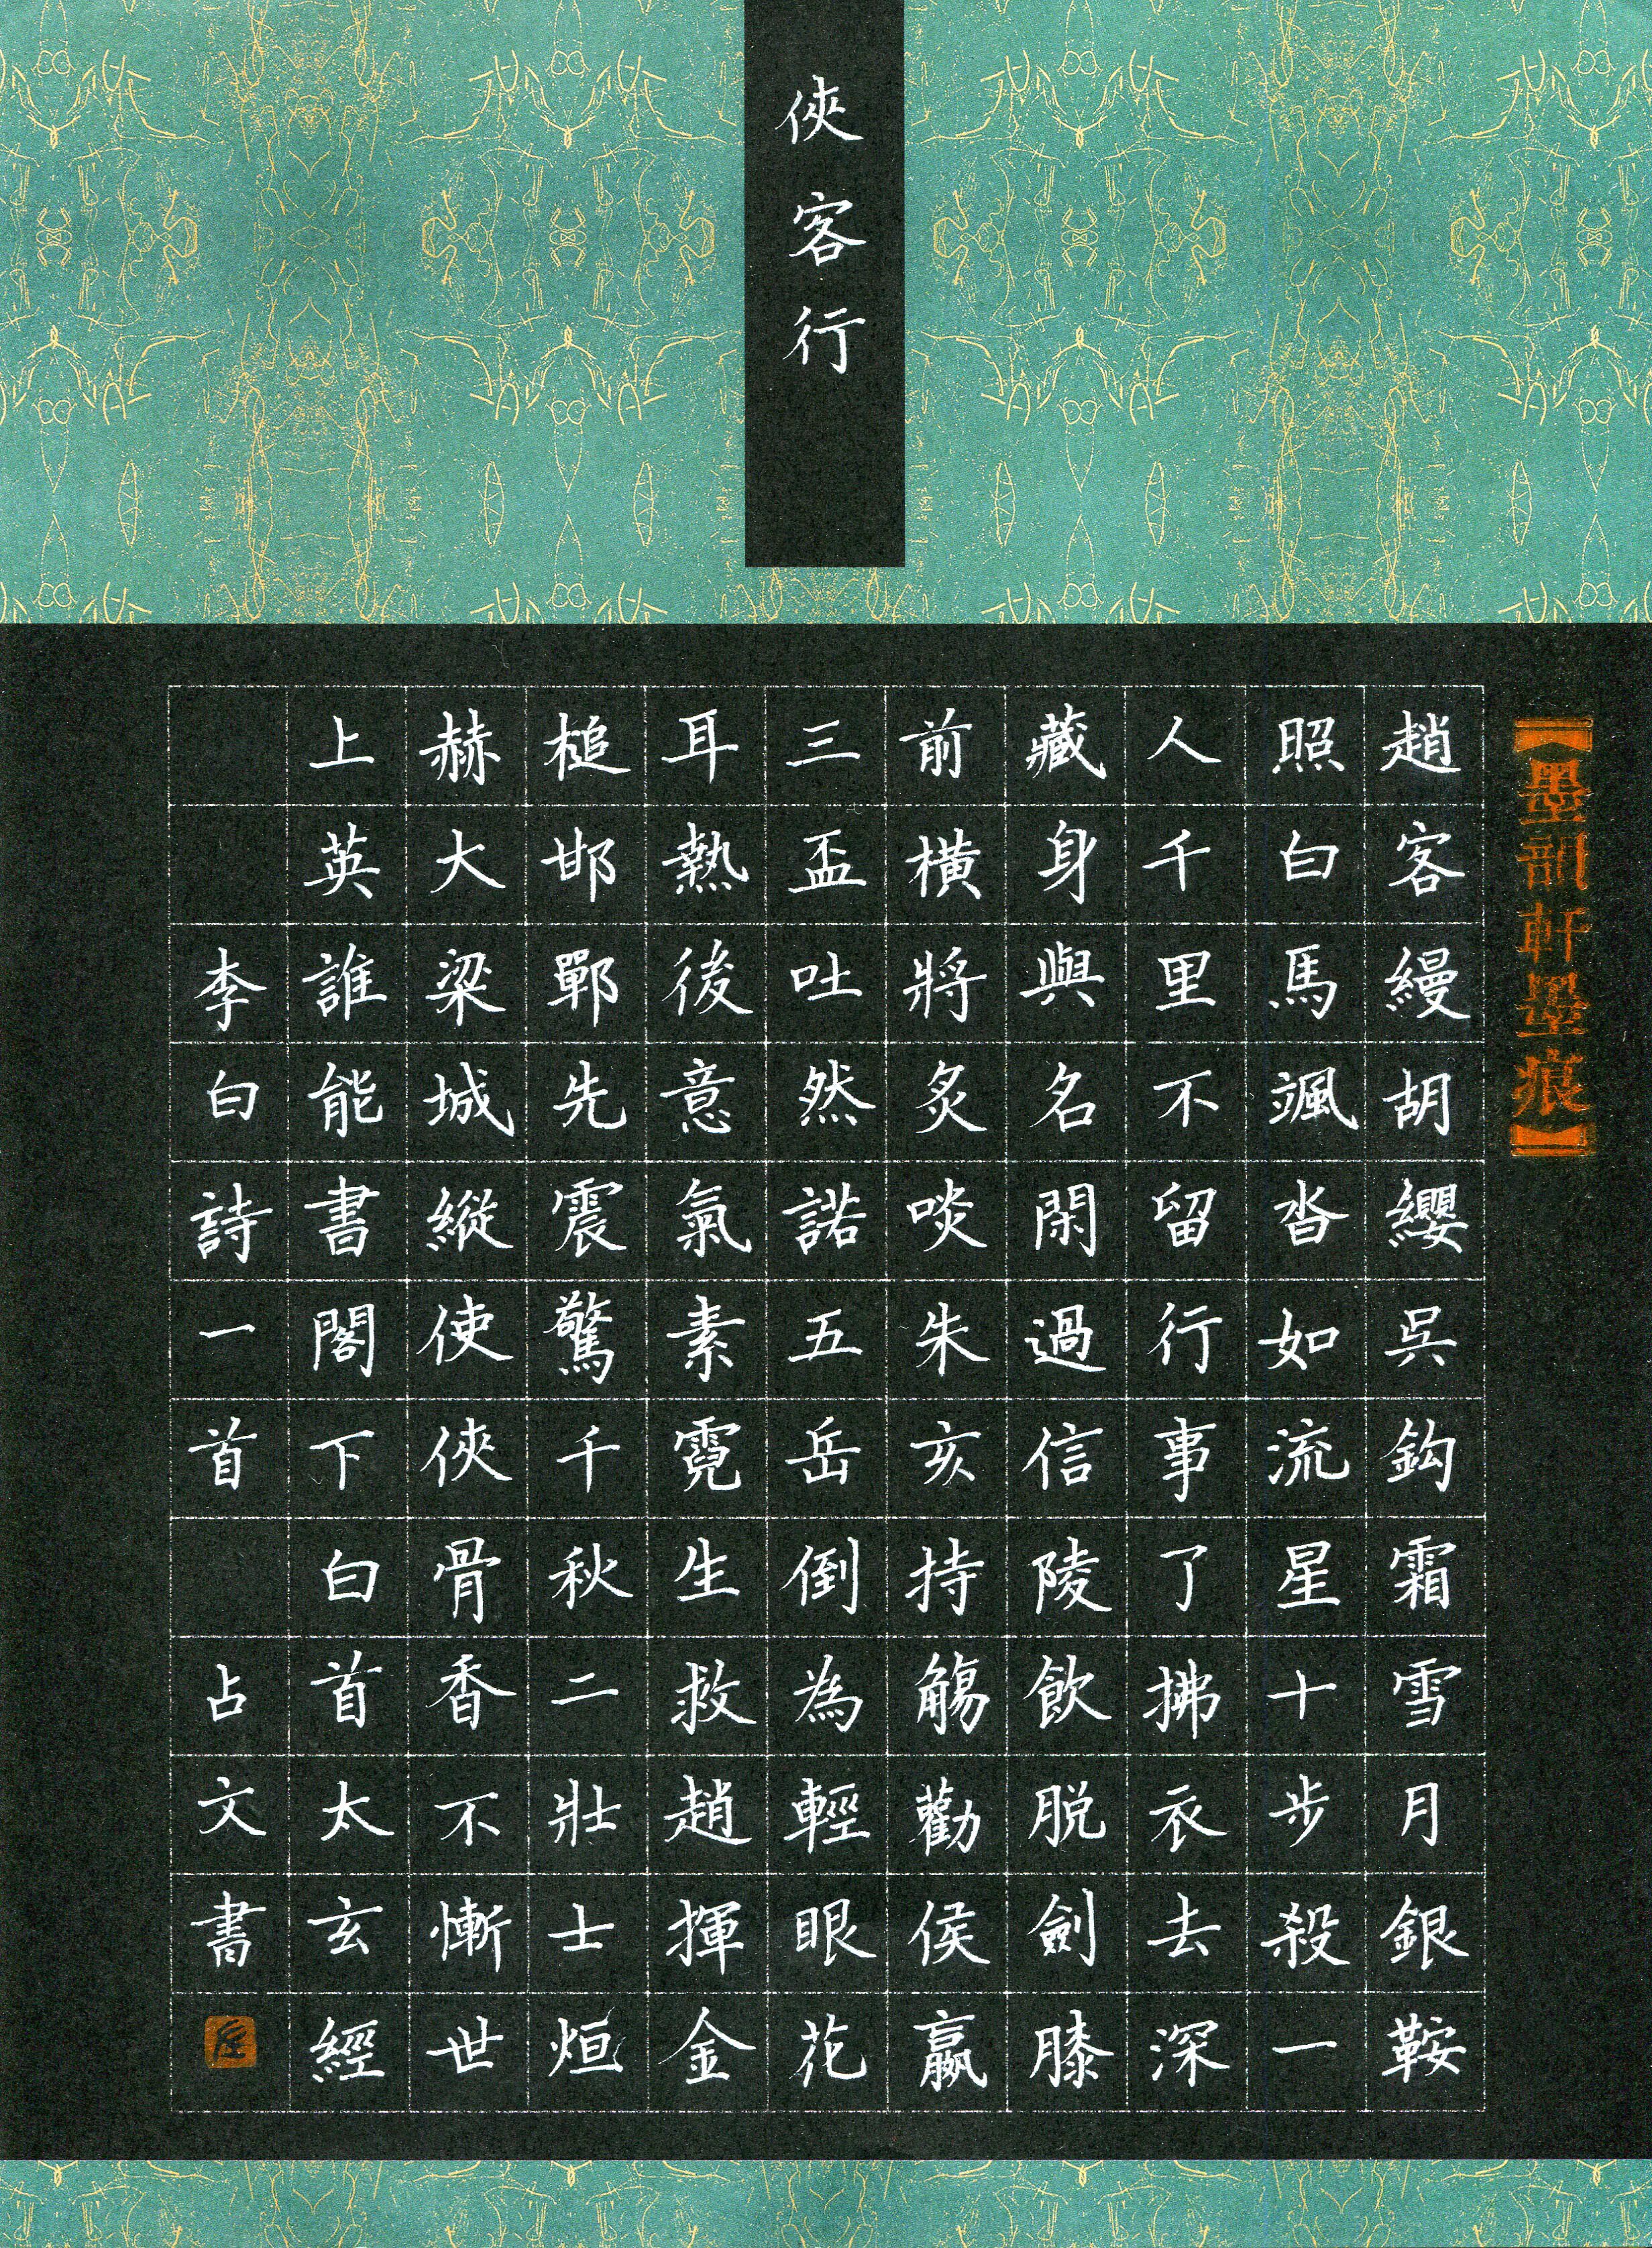 俠客行
【墨韻軒墨痕】
趙客縵胡纓吳鈎霜雪月銀鞍
照白馬颯沓如流星十步殺一
人千里不留行事了拂衣去深
藏身與名閑過信陵飲脱劍膝
前橫將炙啖朱亥持觴勸侯嬴
三盃吐然諾五岳倒為輕眼花
耳熱後意氣素霓生救趙揮金
槌邯鄲先震驚千秋二壯士烜
赫大梁城縱使俠骨香不慚世
上英誰能書閣下白首太玄經
李白詩一首 占文書